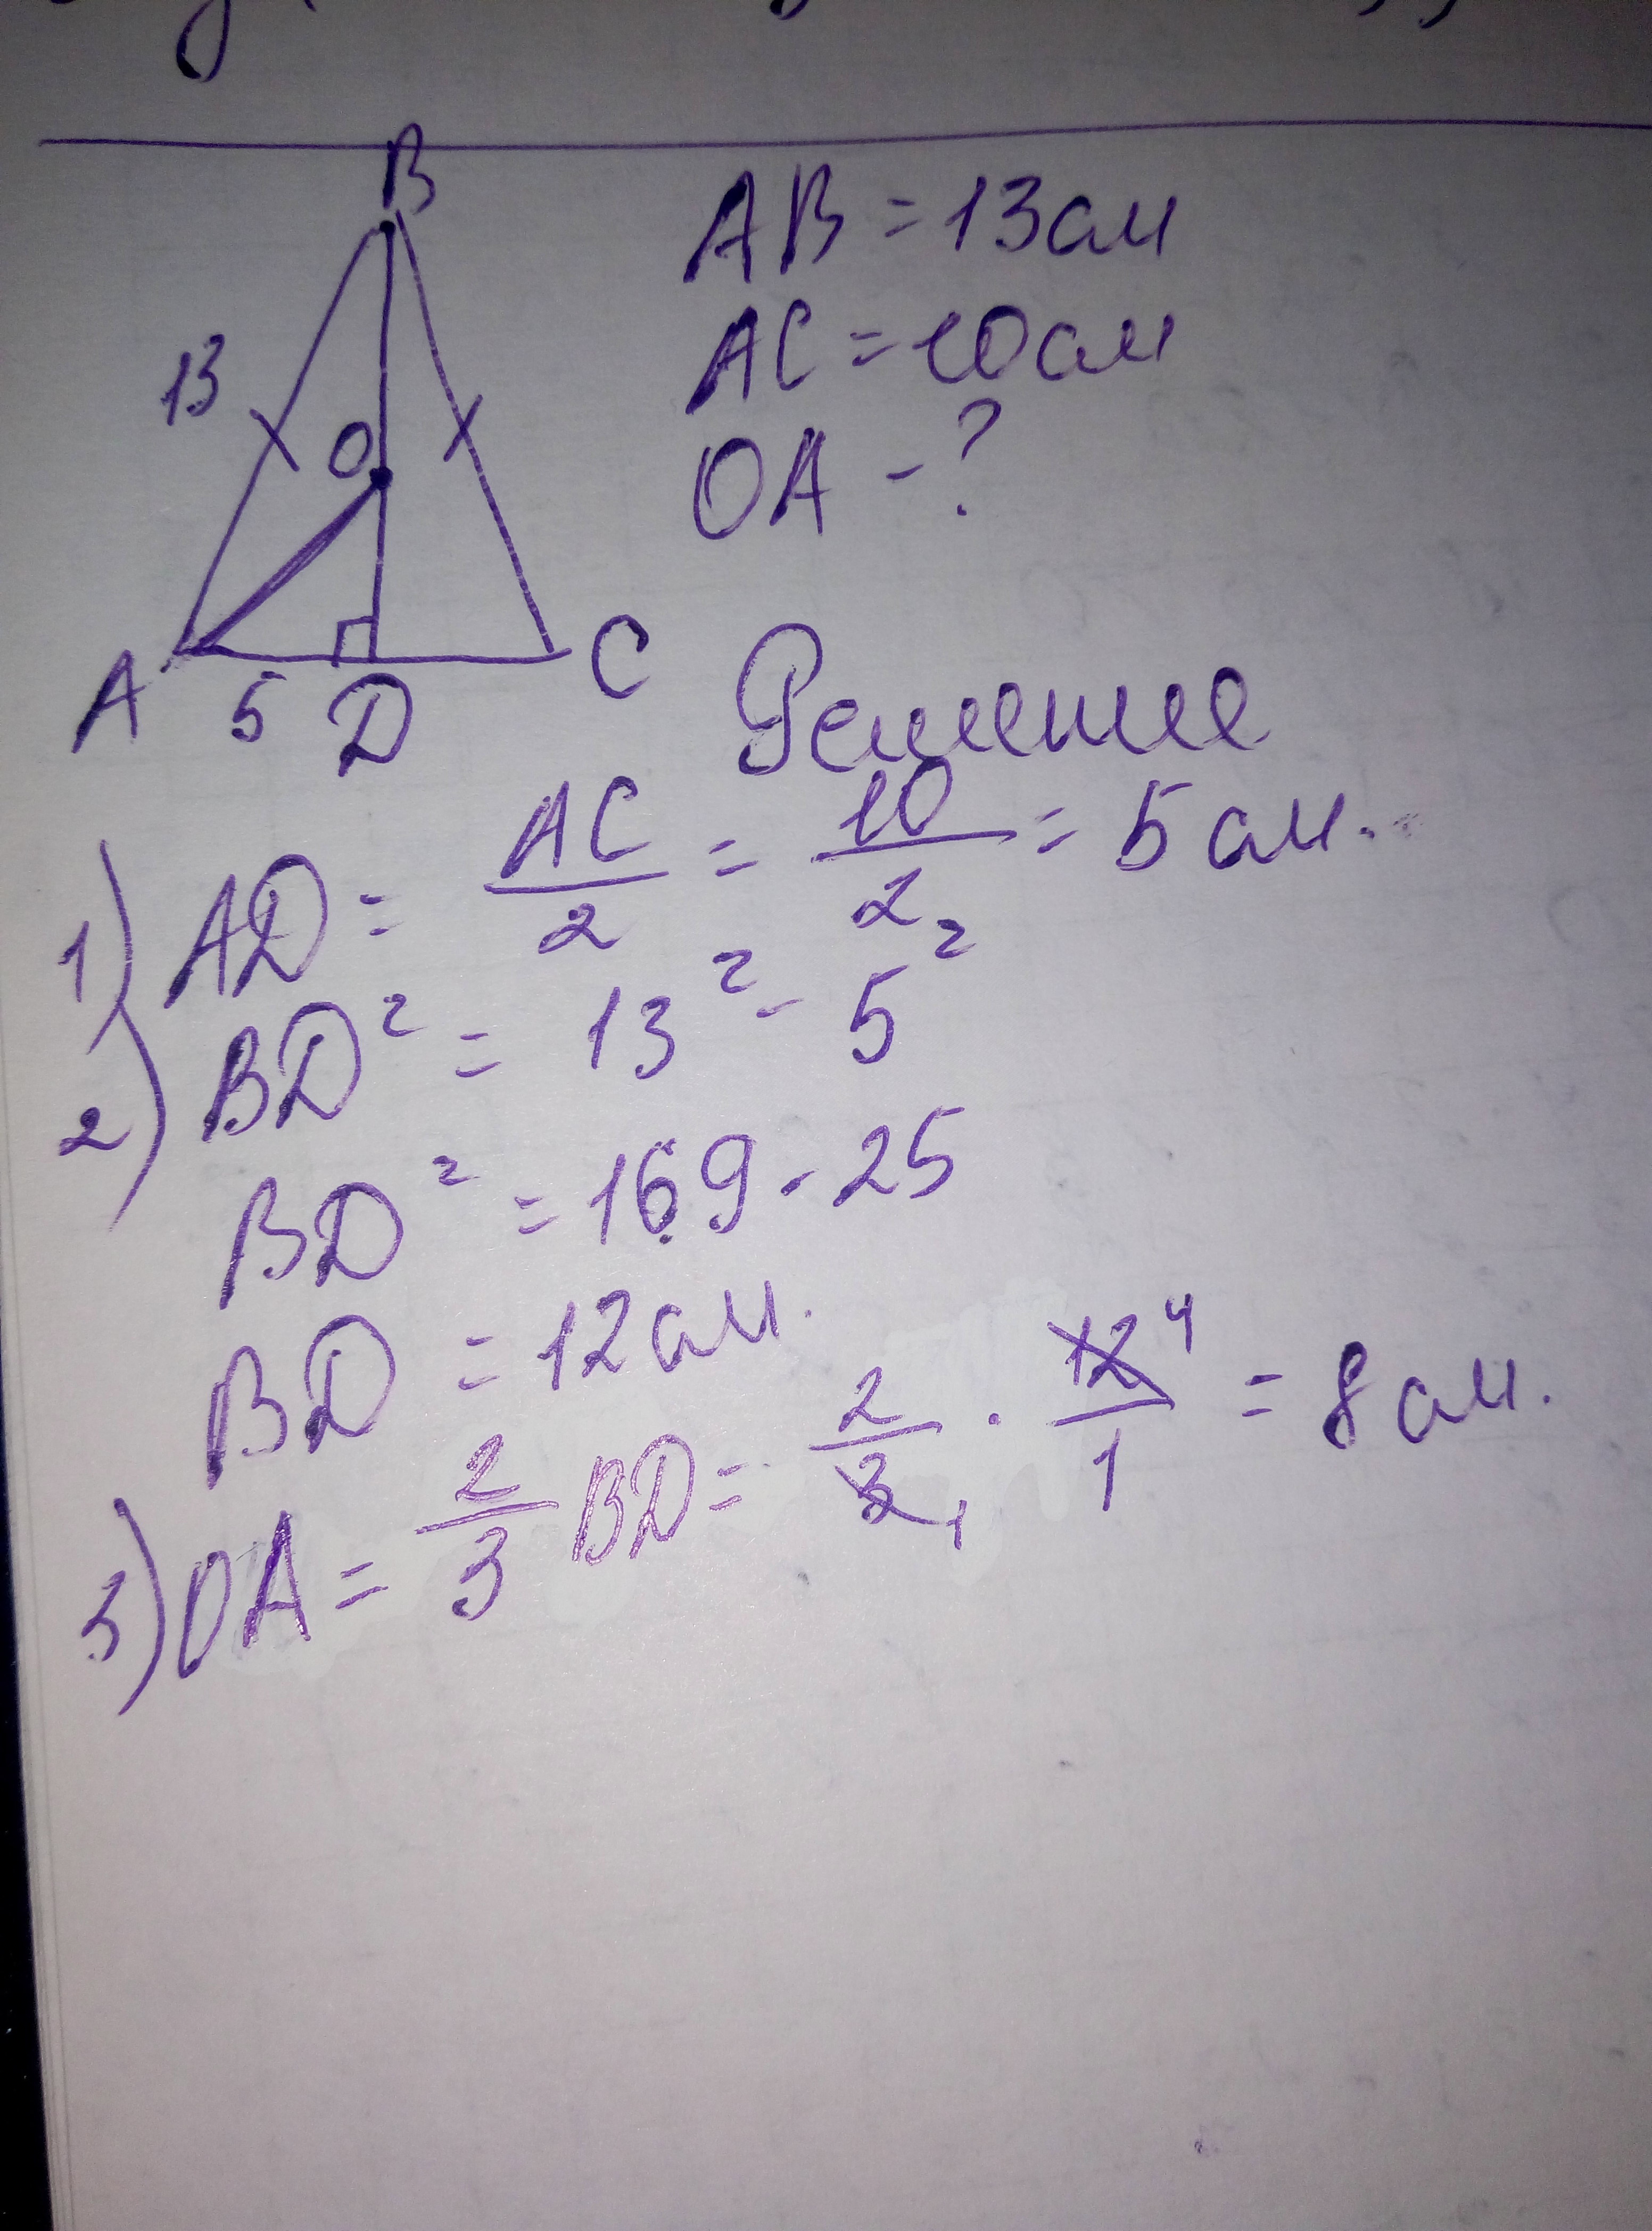 B
13
O
A
5
D
C
AB = 13см
AC = 10см
OA - ?
Решение
1) AD = AC/2 = 10/2 = 5 см.
2) BD² = 13² - 5²
BD² = 169 - 25
BD = 12см.
3) OA = 2/3 BD = 2/3 1 · 12 4/1 = 8 см.